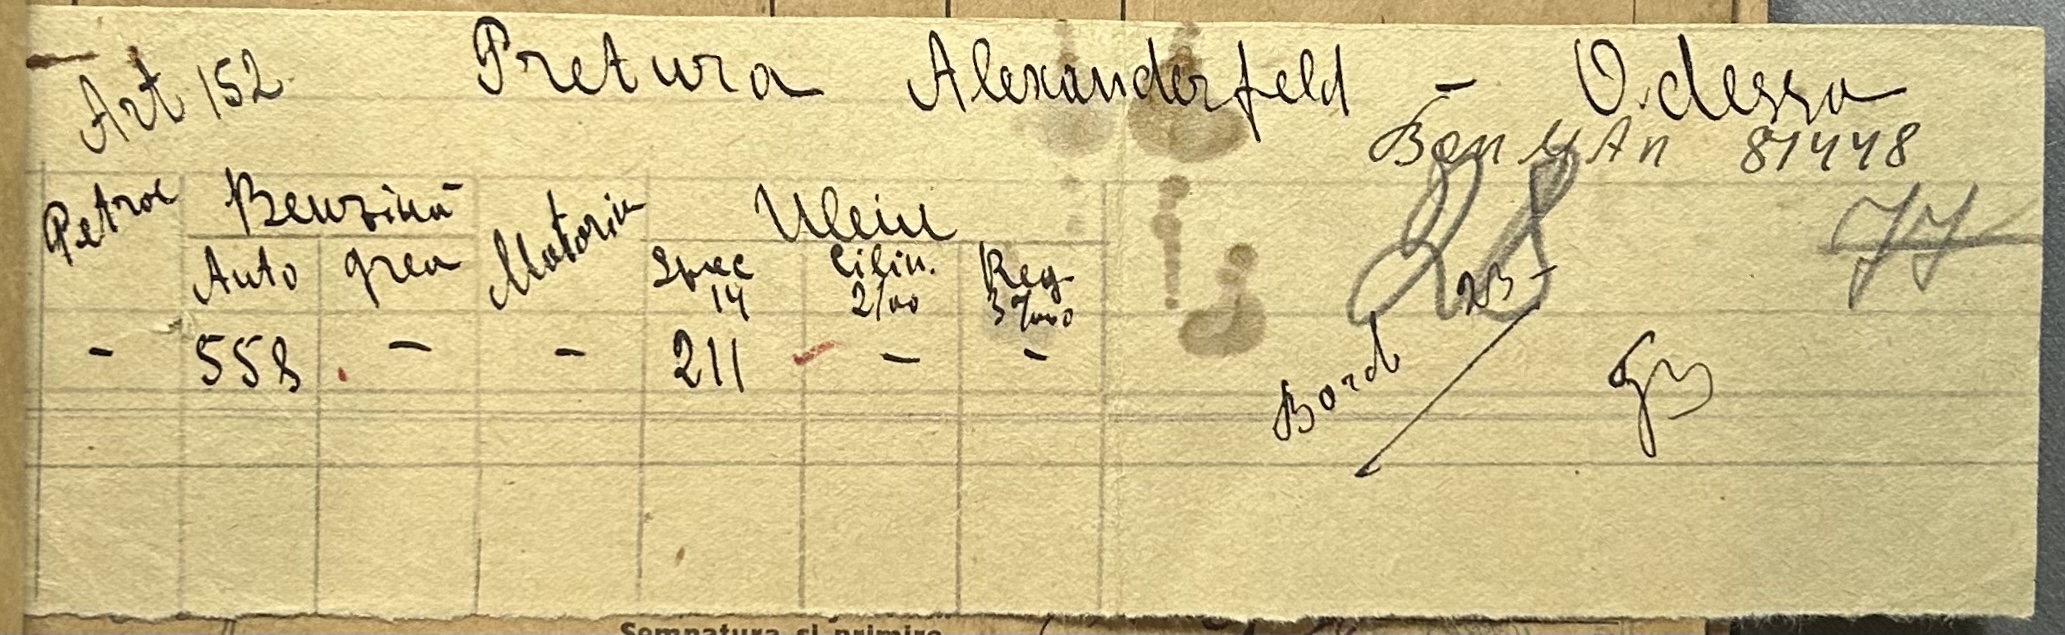 Art 152 Pretura Alexanderfeld - Odessa
Bon 81448
Petrol Benzină Motorin Uleiu
Auto grea Spec 14 Cilin. 2/00 Reg 3%000
- 558 - - 211 - -
28
Bord 23-
Semnatura si primire